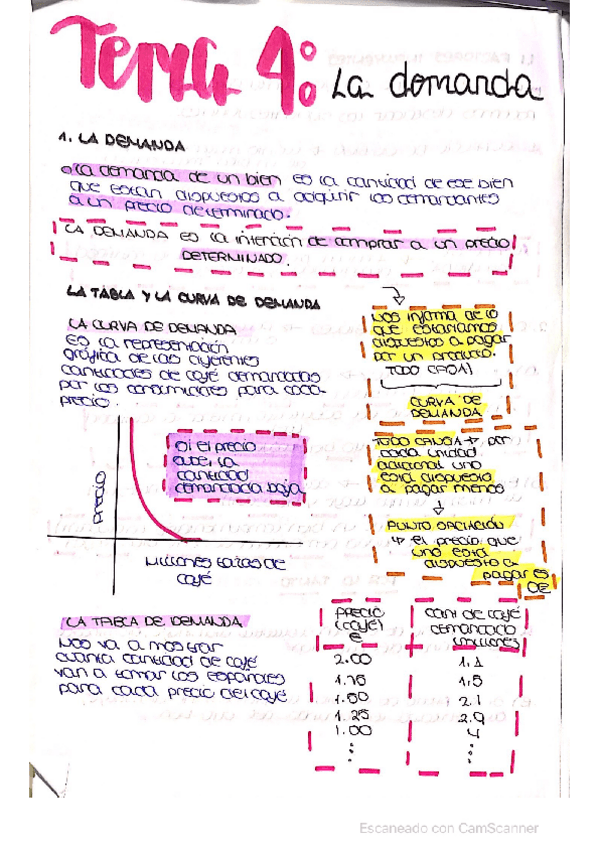 Tema 4:
La demanda
1. LA DEMANDA
La demanda de un bien es la cantidad de ese bien
que están dispuestos a adquirir los demandantes
a un precio determinado.
LA DEMANDA es la intención de comprar a un precio
DETERMINADO.
LA TABLA Y LA CURVA DE DEMANDA
LA CURVA DE DEMANDA
Es la representación
gráfica de las diferentes
cantidades de café demandadas
por los consumidores para cada
precio.
precio
Si el precio
sube, la
cantidad
demandada baja
Millones tazas de
café
Nos informa de lo
que estaríamos
dispuestos a pagar
por un producto.
CURVA DE
DEMANDA
por
cada unidad
adicional uno
está dispuesto
a pagar menos
↓
PUNTO SACIACIÓN
↳ el precio que
uno está
dispuesto a
pagar es
0€
LA TABLA DE DEMANDA
Nos va a mostrar
cuánta cantidad de café
van a tomar los españoles
para cada precio del café
PRECIO
(café)
€
2.00
1.75
1.50
1.25
1.00
Cant de café
demandado
(millones)
1.1
1.5
2.1
2.9
4
Escaneado con CamScanner